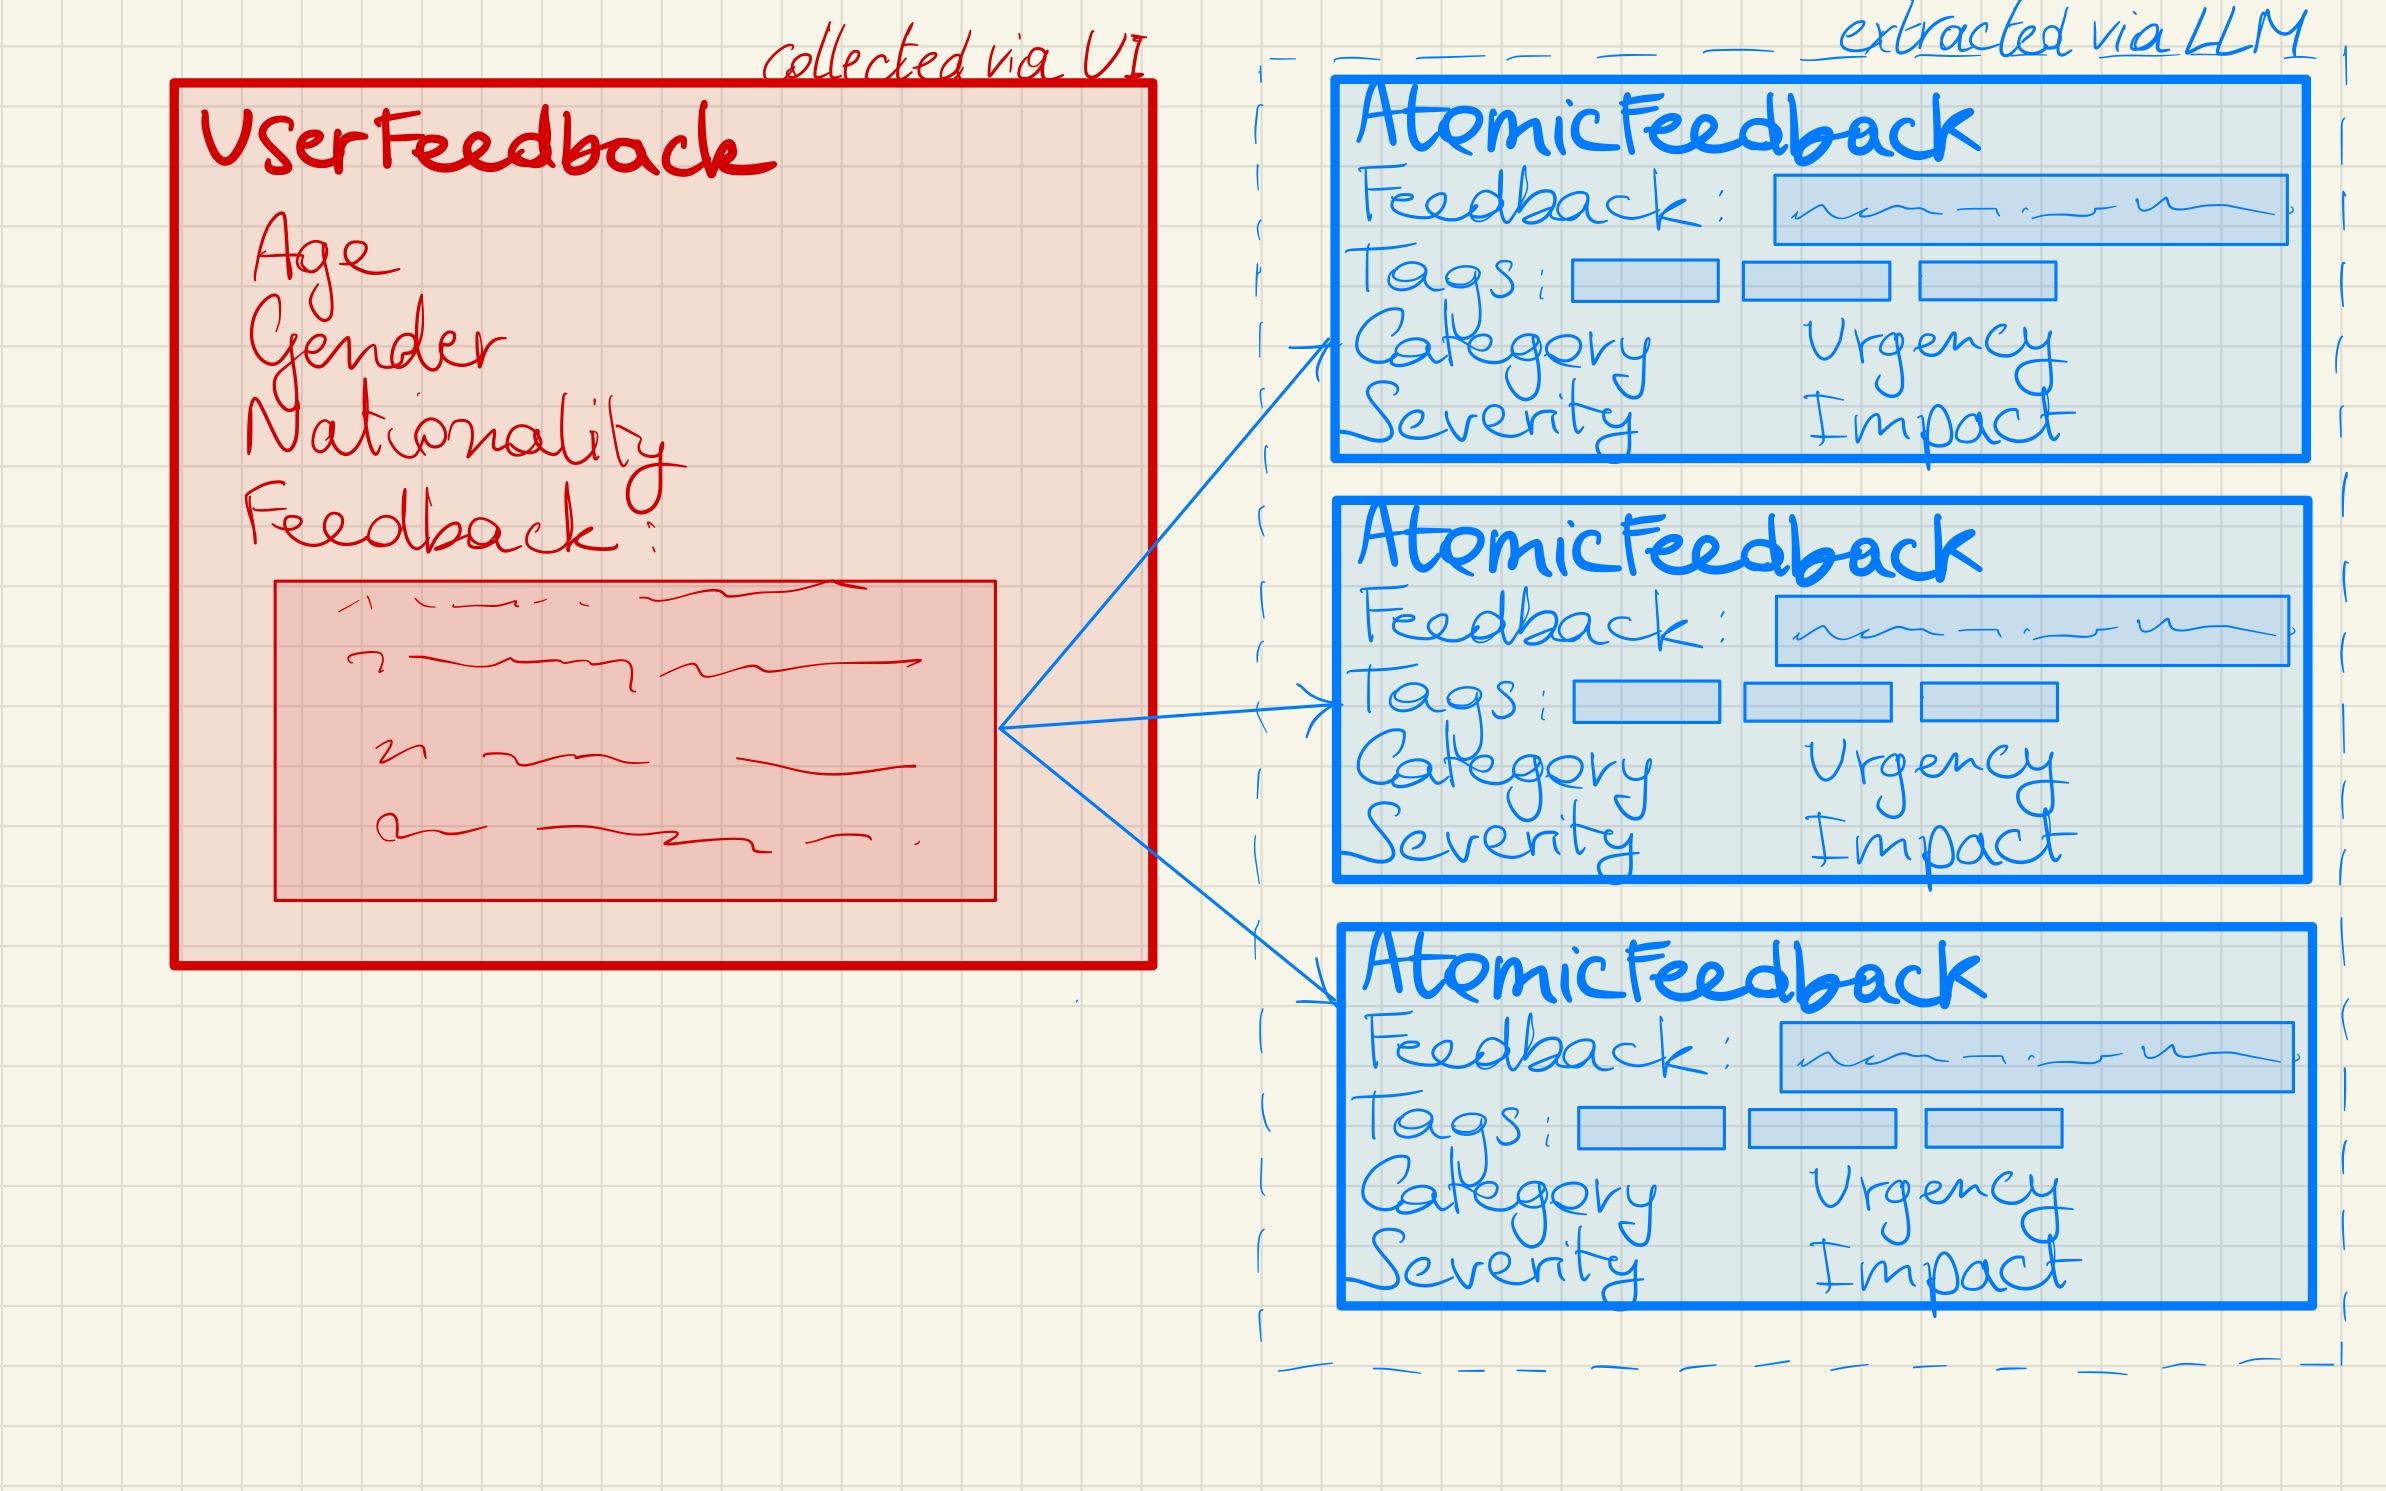 collected via UI
UserFeedback
Age
Gender
Nationality
Feedback:
extracted via LLM
AtomicFeedback
Feedback:
Tags:
Category Urgency
Severity Impact
AtomicFeedback
Feedback:
Tags:
Category Urgency
Severity Impact
AtomicFeedback
Feedback:
Tags:
Category Urgency
Severity Impact